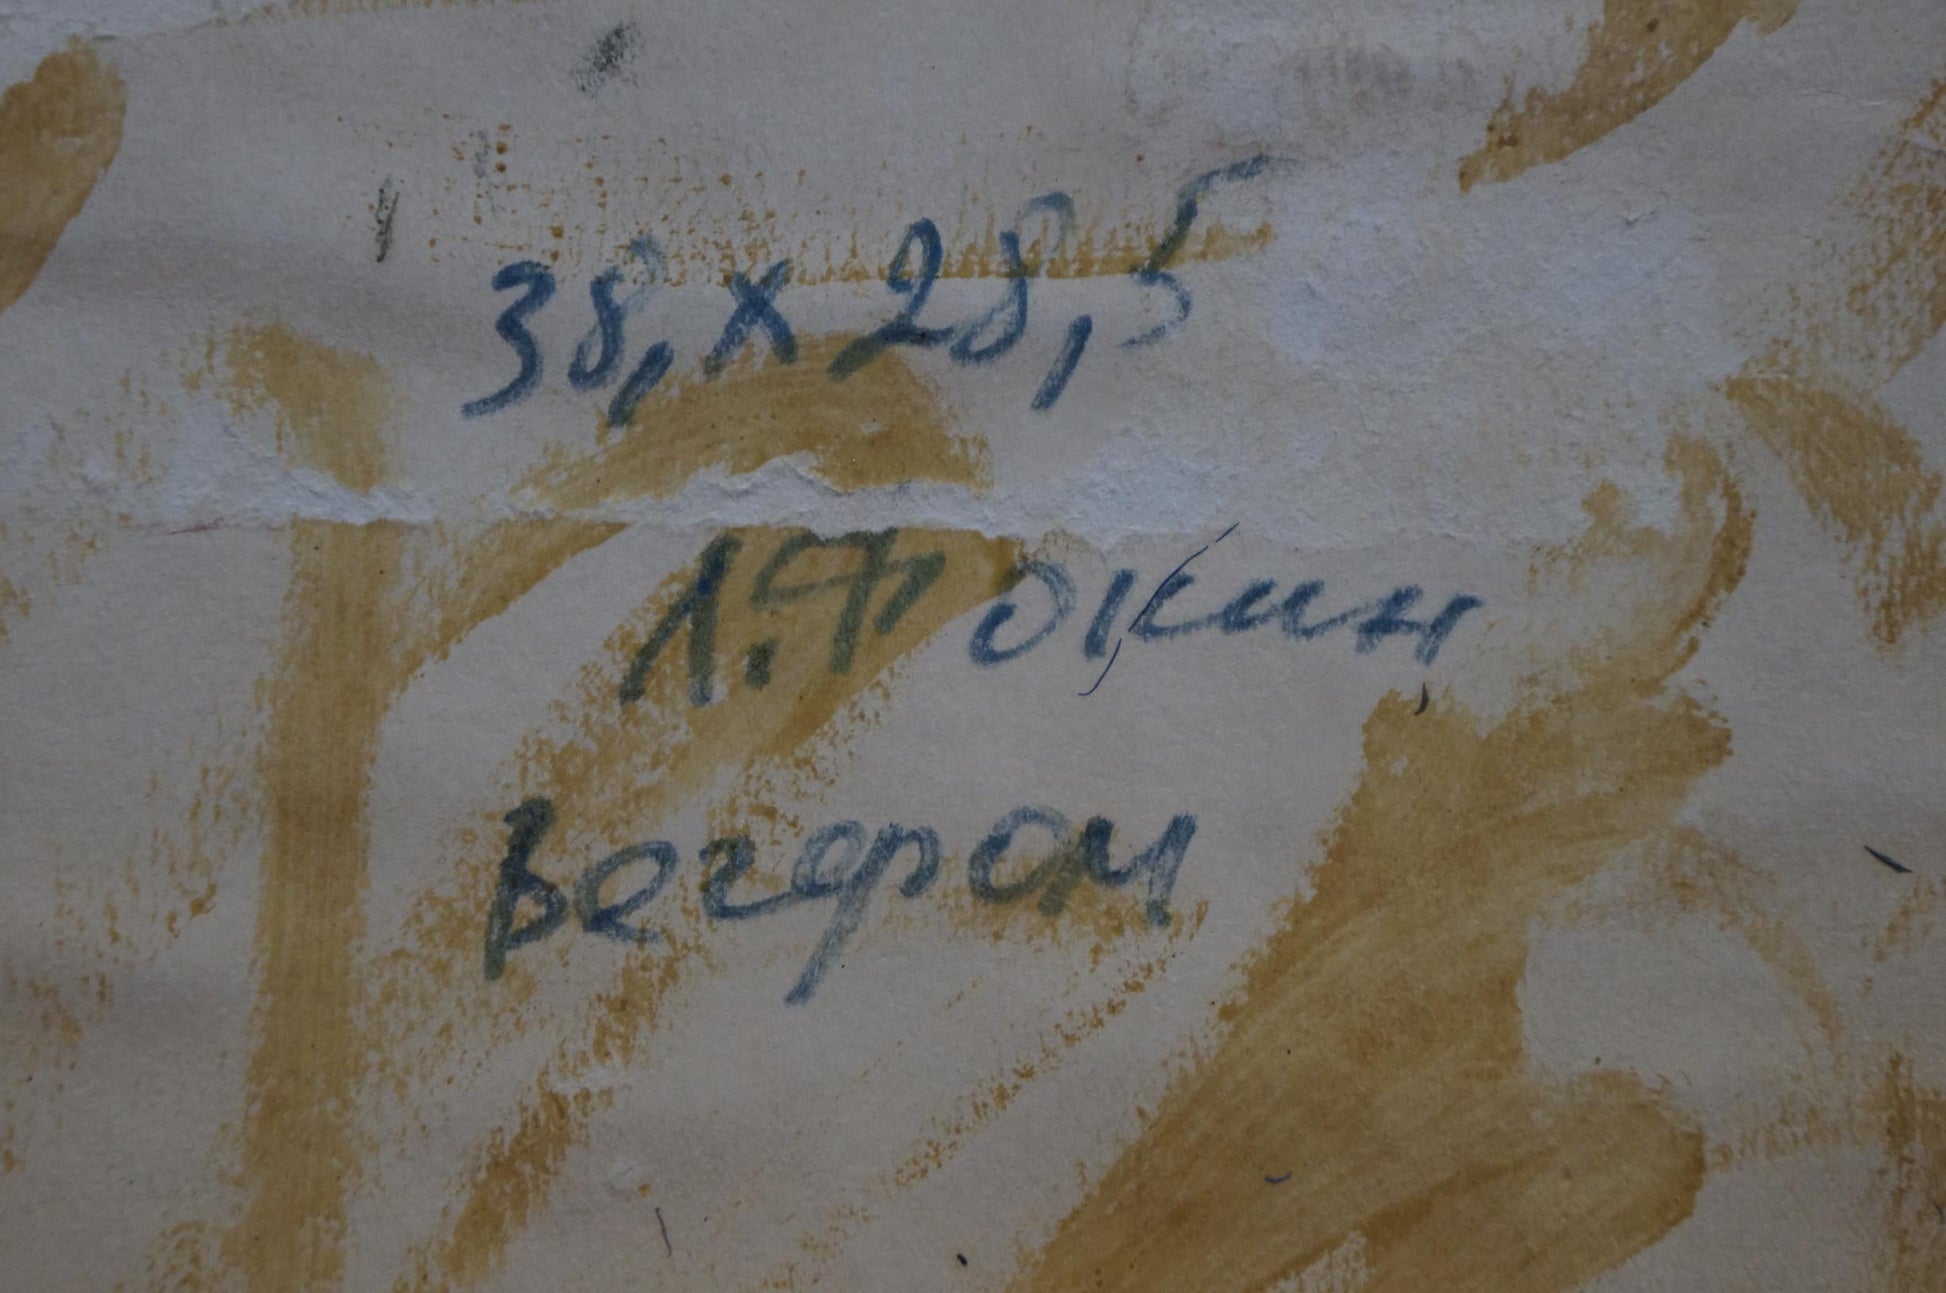 38,х28,5
Л.Фокин
Вегером